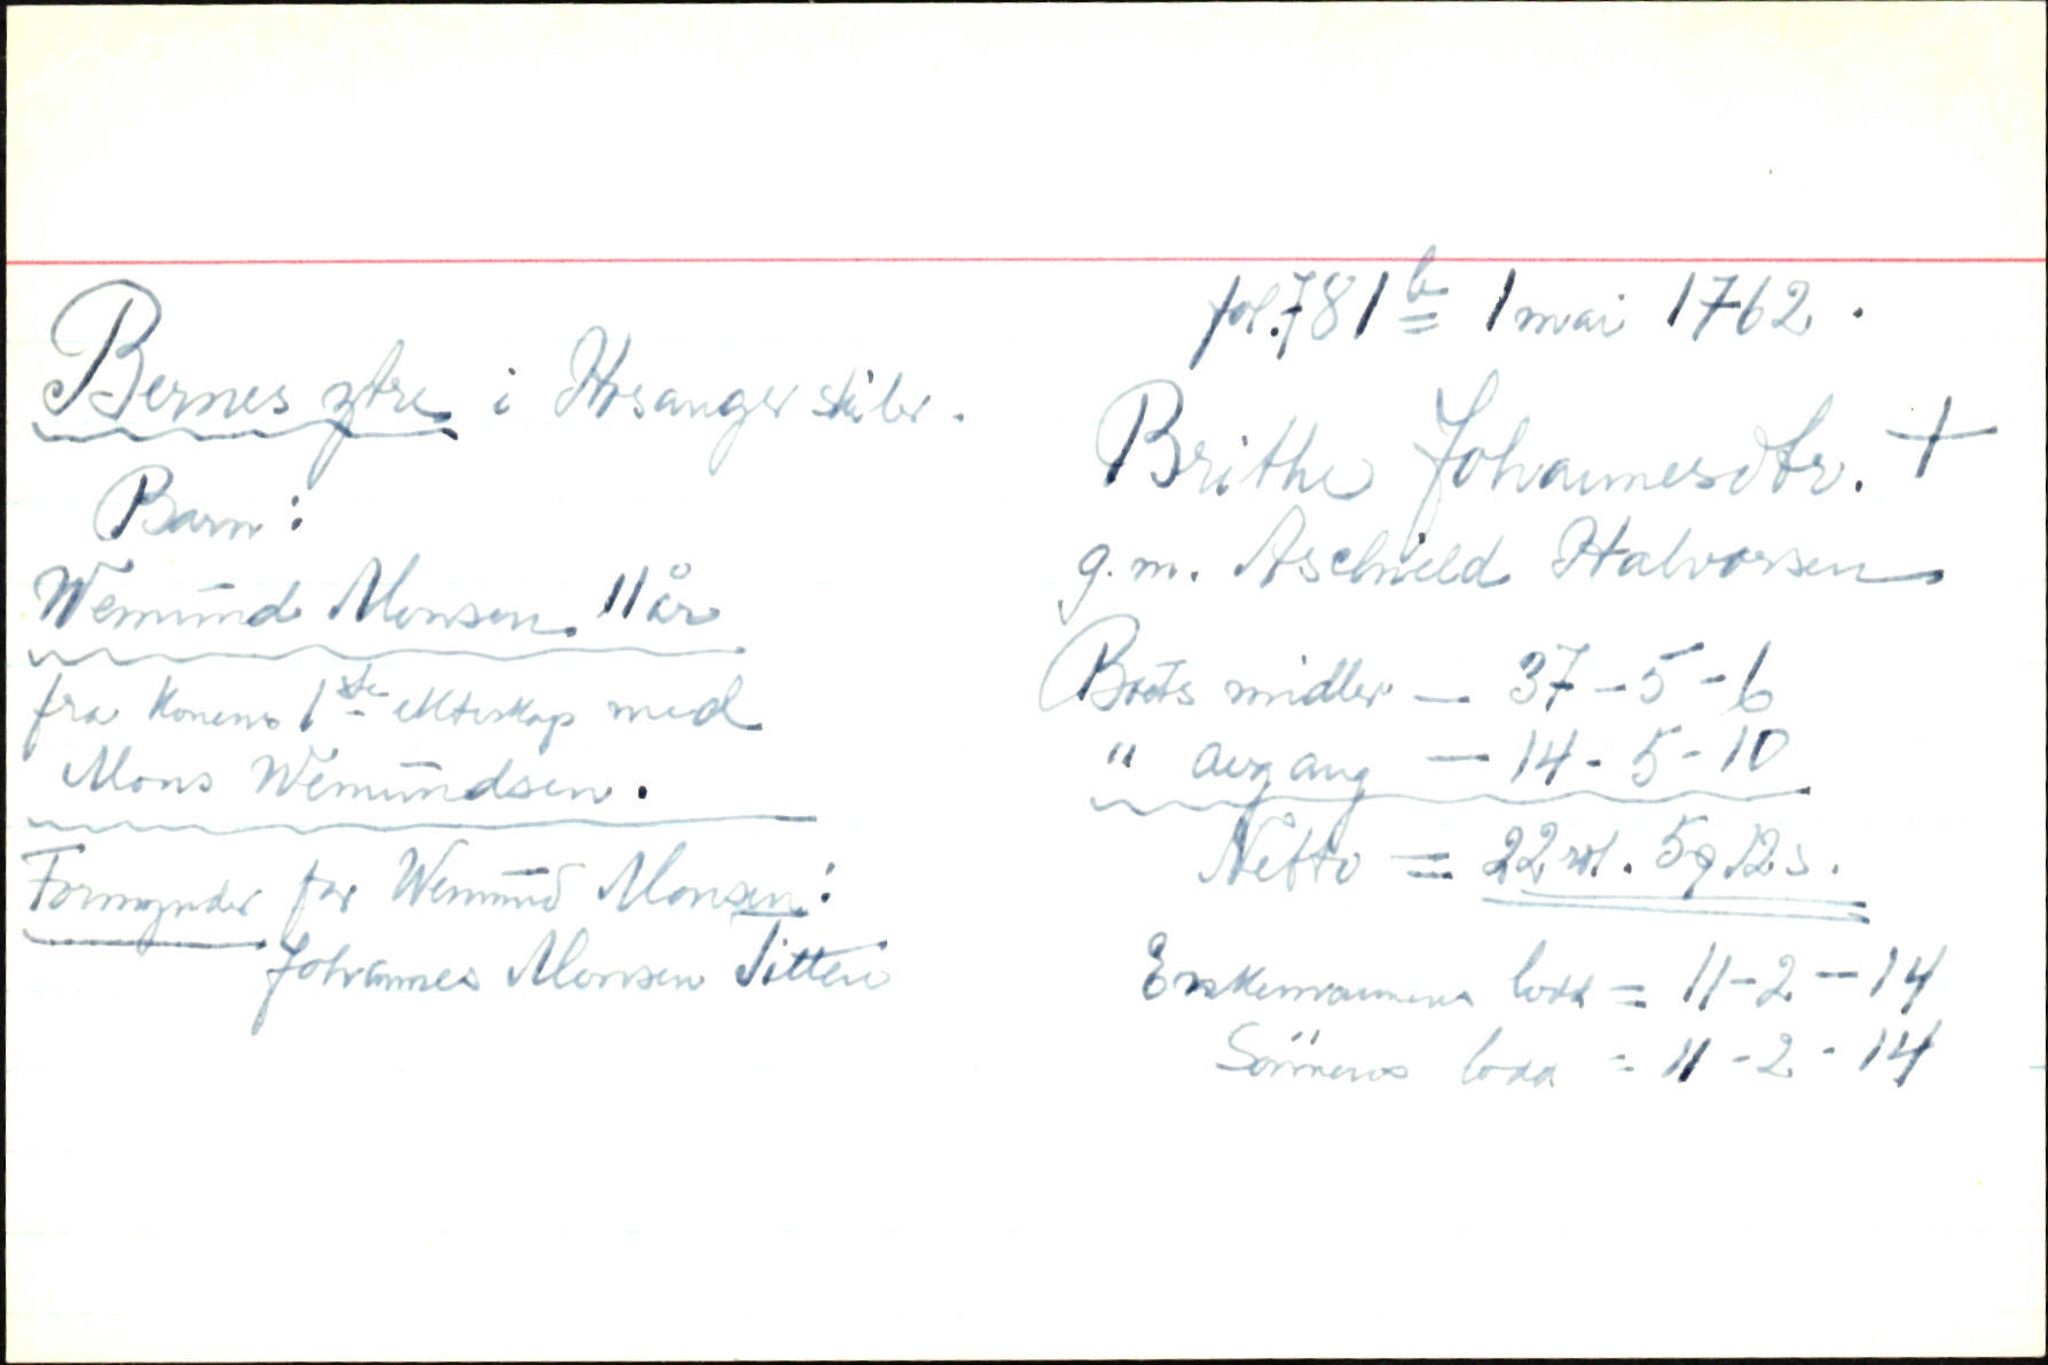 fol. 781 b 1 mai 1762.
Bernes ytre i Hosanger skibr.
Brithe Johannesdtr. +
g.m. Aschield Halvorsen
Barn:
Wemund Monsen. 11 år
fra konens 1ste ekteskap med
Mons Wemundsen.
Formynder for Wemund Monsen:
Johannes Monsen Titten
Boets midler — 37-5-6
" avgang — 14-5-10
Netto = 22 rd. 5 q 12 s.
Enkemannens lodd = 11-2-14
Sönnens lodd = 11-2-14